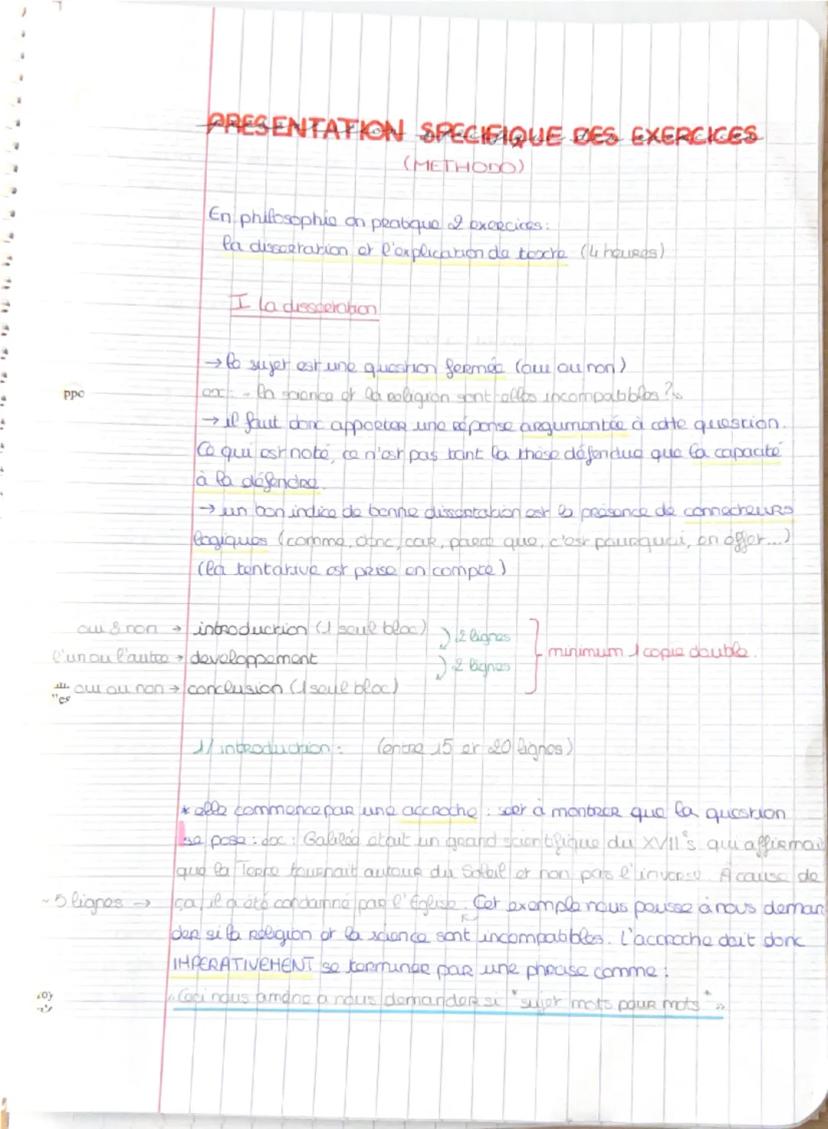 PRESENTATION SPECIFIQUE DES EXERCICES
(METHODO)
En philosophie on pratique 2 exercices:
la dissertation et l'explication de texte (4 heures)
I la dissertation
→ le sujet est une question fermée (oui ou non)
ex: - la science et la religion sont elles incompatibles?
→ il faut donc apporter une réponse argumentée à cette question.
Ce qui est noté, ce n'est pas tant la thèse défendue que la capacité
à la défendre.
→ un bon indice de bonne dissertation est la présence de connecteurs
logiques (comme, donc, car, parce que, c'est pourquoi, en effet...)
(la tentative est prise en compte)
oui & non → introduction (1 seul bloc) ) 2 lignes
l'un ou l'autre → developpement ) 2 lignes
oui ou non → conclusion (1 seul bloc)
minimum 1 copie double.
1/ introduction: (entre 15 et 20 lignes)
* elle commence par une accroche: sert à montrer que la question
se pose: doc: Galilée était un grand scientifique du XVII s. qui affirmai
que la Terre tournait autour du Soleil et non pas l'inverse. A cause de
~5 lignes → ça, il a été condamné par l'Eglise. Cet exemple nous pousse à nous deman
der si la religion et la science sont incompatibles. L'accroche doit donc
IMPERATIVEMENT se terminer par une phrase comme:
"Ceci nous amène a nous demander si "sujet mots pour mots"»